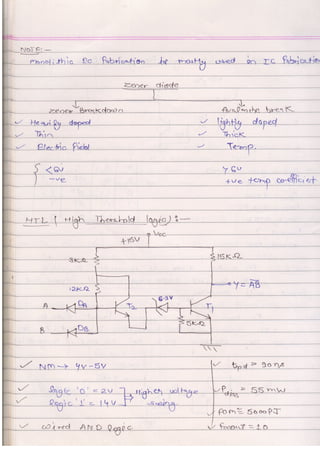 NOTE:-
Monolithic IC Fabrication be mostly used in IC Fabrication
Zener diode
Zener Breakdown
Avalanche break
Heavily doped
lightly doped
Thin
Thick
Electric Field
Temp.
<6V
>6V
-ve
+ve temp coefficient
HTL ( High Threshold logic) :-
+15V Vcc
3KΩ
15KΩ
12KΩ
Y= AB
A
DA
T2
6.9V
T1
B
DB
5KΩ
NM → 4V-5V
tpd = 90ns
logic '0' = 2V
Higher voltage
Pdiss = 55mW
logic '1' = 14V
swing
FOM = 5000PJ
Wired AND logic
fanout = 10